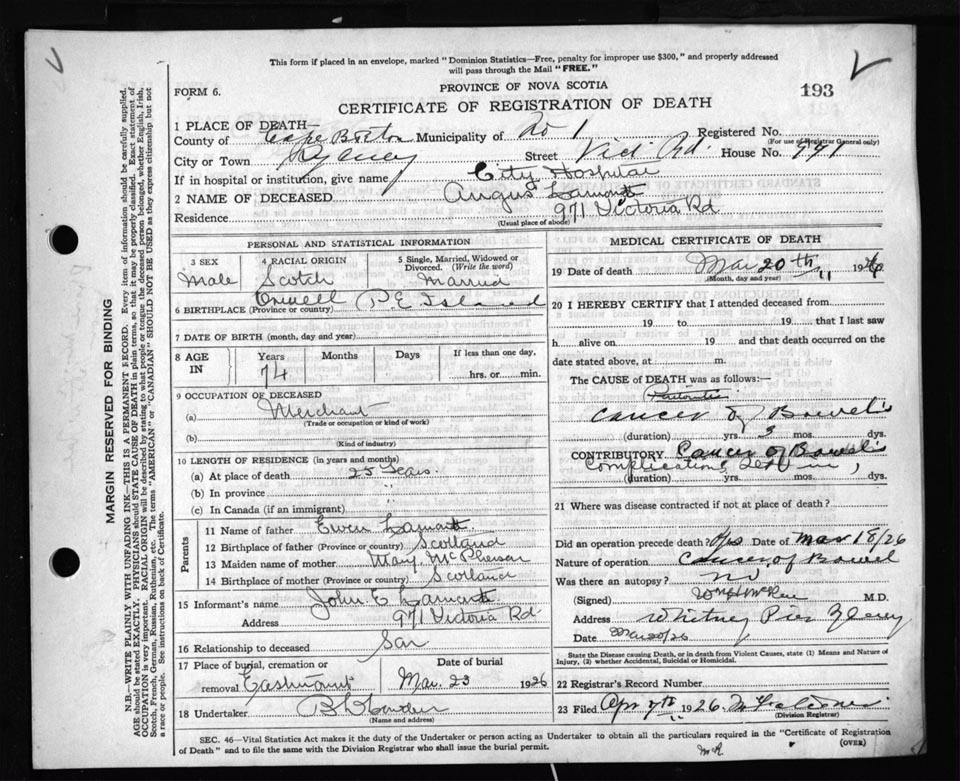 This form if placed in an envelope, marked "Dominion Statistics—Free, penalty for improper use $300," and properly addressed
will pass through the Mail "FREE."
PROVINCE OF NOVA SCOTIA
193
FORM 6.
CERTIFICATE OF REGISTRATION OF DEATH
1 PLACE OF DEATH
County of Cape Breton Municipality of No 1 Registered No.
(For use of Registrar General only)
City or Town Sydney Street Vict. Rd. House No. 971
If in hospital or institution, give name City Hospital
2 NAME OF DECEASED Angus Lamont
Residence 971 Victoria Rd
(Usual place of abode)
PERSONAL AND STATISTICAL INFORMATION
3 SEX
Male
4 RACIAL ORIGIN
Scotch
5 Single, Married, Widowed or Divorced. (Write the word)
Married
6 BIRTHPLACE (Province or country) Orwell P.E. Island
7 DATE OF BIRTH (month, day and year)
8 AGE IN
Years Months Days If less than one day,
74
hrs. or min.
9 OCCUPATION OF DECEASED
(a) Merchant
(Trade or occupation or kind of work)
(b)
(Kind of industry)
10 LENGTH OF RESIDENCE (in years and months)
(a) At place of death 25 Years.
(b) In province "
(c) In Canada (if an immigrant)
Parents
11 Name of father Ewen Lamont
12 Birthplace of father (Province or country) Scotland
13 Maiden name of mother Mary McPherson
14 Birthplace of mother (Province or country) Scotland
15 Informant's name John E Lamont
Address 971 Victoria Rd
16 Relationship to deceased Son
17 Place of burial, cremation or removal Eastmount
Date of burial
Mar. 23 1926
18 Undertaker
(Name and address)
MEDICAL CERTIFICATE OF DEATH
19 Date of death Mar 20th 1926
(Month, day and year)
20 I HEREBY CERTIFY that I attended deceased from
19 to 19 that I last saw
h alive on 19 and that death occurred on
date stated above, at m.
The CAUSE of DEATH was as follows:
Cancer of Bowels
(duration) yrs. 3 mos. dys.
CONTRIBUTORY Cancer of Bowels
Complications
(duration) yrs. mos. dys.
21 Where was disease contracted if not at place of death?
Did an operation precede death? Yes Date of Mar 18/26
Nature of operation Cancer of Bowel
Was there an autopsy? no
(Signed) M.D.
Address Whitney Pier Sydney
Date Mar 20/26
State the Disease causing Death, or in death from Violent Causes, state (1) Means and Nature of
Injury, (2) whether Accidental, Suicidal or Homicidal.
22 Registrar's Record Number
23 Filed Apr 7th 1926
(Division Registrar)
SEC. 46—Vital Statistics Act makes it the duty of the Undertaker or person acting as Undertaker to obtain all the particulars required in the "Certificate of Registration
of Death" and to file the same with the Division Registrar who shall issue the burial permit.
(OVER)
MARGIN RESERVED FOR BINDING
N.B.—WRITE PLAINLY WITH UNFADING INK—THIS IS A PERMANENT RECORD. Every item of information should be carefully supplied.
AGE should be stated EXACTLY. PHYSICIANS should STATE CAUSE OF DEATH in plain terms, so that it may be properly classified. Exact statement of
OCCUPATION is very important. RACIAL ORIGIN will be described by stating to what people or tongue the deceased person belonged, whether English, Irish,
Scotch, French, German, Russian, Ruthenian, etc. The terms "AMERICAN" or "CANADIAN" SHOULD NOT BE USED as they express citizenship but not
a race or people. See instructions on back of Certificate.